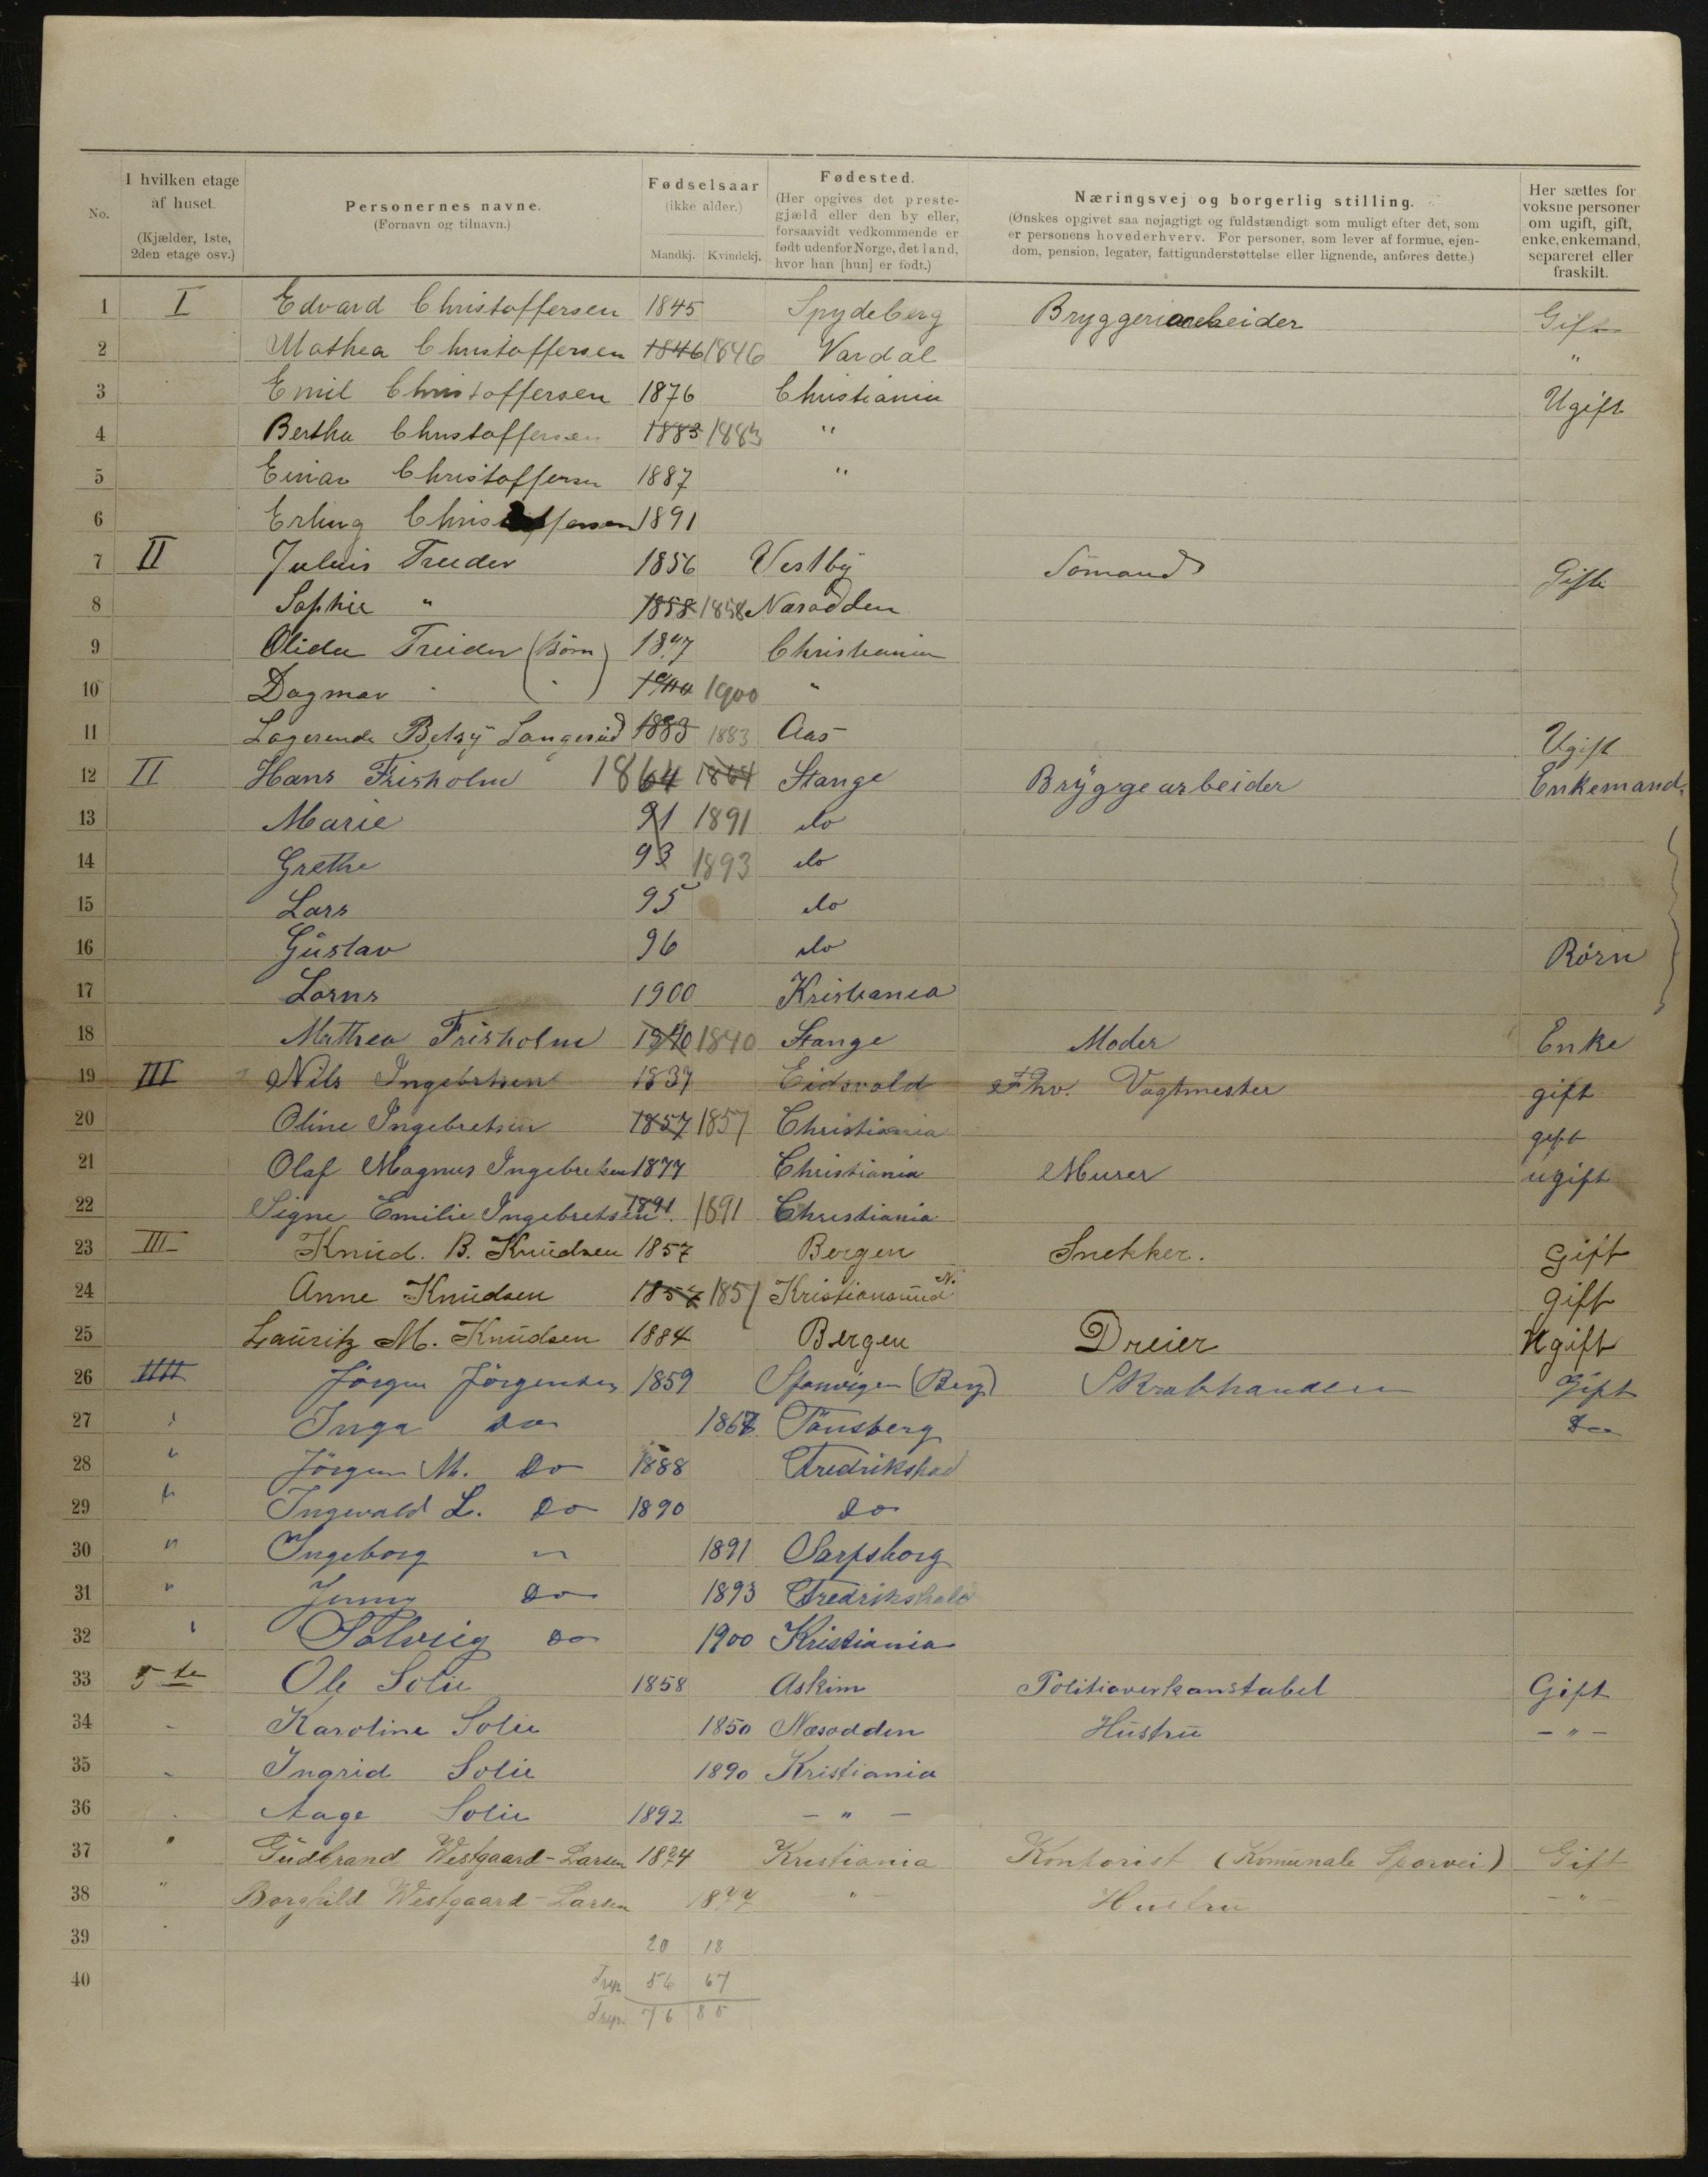 No.
I hvilken etage af huset. (Kjælder, 1ste, 2den etage osv.)
Personernes navne. (Fornavn og tilnavn.)
Fødselsaar (ikke alder.) Mandkj. Kvindekj.
Fødested. (Her opgives det prestegjæld eller den by eller, forsaavidt vedkommende er født udenfor Norge, det land, hvor han [hun] er født.)
Næringsvej og borgerlig stilling. (Ønskes opgivet saa nøjagtigt og fuldstændigt som muligt efter det, som er personens hovederhverv. For personer, som lever af formue, ejendom, pension, legater, fattigunderstøttelse eller lignende, anføres dette.)
Her sættes for voksne personer om ugift, gift, enke, enkemand, separeret eller fraskilt.
1 I Edvard Christoffersen 1845 Spydeberg Bryggeriarbeider Gift
2 Mathea Christoffersen 1846 1846 Vardal "
3 Emil Christoffersen 1876 Christiania Ugift
4 Bertha Christoffersen 1883 1883 "
5 Einar Christoffersen 1887 "
6 Erling Christoffersen 1891
7 II Julius Treider 1856 Vestby Sömand Gift
8 Sophie " 1858 1858 Næsodden
9 Olida Treider (Børn) 1897 Christiania
10 Dagmar " (") 1900 1900 "
11 Logerende Betsy Langerud 1883 1883 Aas Ugift
12 II Hans Frisholm 1864 1864 Stange Bryggearbeider Enkemand
13 Marie 91 1891 do
14 Grethe 93 1893 do
15 Lars 95 do
16 Gustav 96 do Børn
17 Lorns 1900 Kristiania
18 Mathea Frisholm 1840 1840 Stange Moder Enke
19 III Nils Ingebretsen 1837 Eidsvold Fhv. Vagtmester gift
20 Oline Ingebretsen 1857 1857 Christiania gift
21 Olaf Magnus Ingebretsen 1877 Christiania Murer ugift
22 Signe Emilie Ingebretsen 1891 1891 Christiania
23 III Knud. B. Knudsen 1857 Bergen Snekker. Gift
24 Anne Knudsen 1857 1857 Kristiansund N. gift
25 Lauritz M. Knudsen 1884 Bergen Dreier Ugift
26 IIII Jörgen Jörgensen 1859 (Berg) Skrabhandler Gift
27 " Inga do 1867 Tönsberg Do
28 " Jörgen M. do 1888 Fredrikstad
29 " Ingevald L. do 1890 do
30 " Ingeborg " 1891 Sarpsborg
31 " Jenny do 1893 Fredrikshald
32 " Solveig do 1900 Kristiania
33 5te Ole Solie 1858 Askim Politioverkonstabel Gift
34 - Karoline Solie 1850 Næsodden Hustru - " -
35 - Ingrid Solie 1890 Kristiania
36 - Aage Solie 1892 - " -
37 " Gudbrand Westgaard-Larsen 1874 Kristiania Kontorist (Komunale Sporvei) Gift
38 " Borghild Westgaard-Larsen 1877 - " - Hustru - " -
39 20 18
40 56 67
76 85